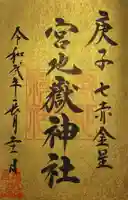 庚子 七赤金星
宮地嶽神社
令和弐年一月三日